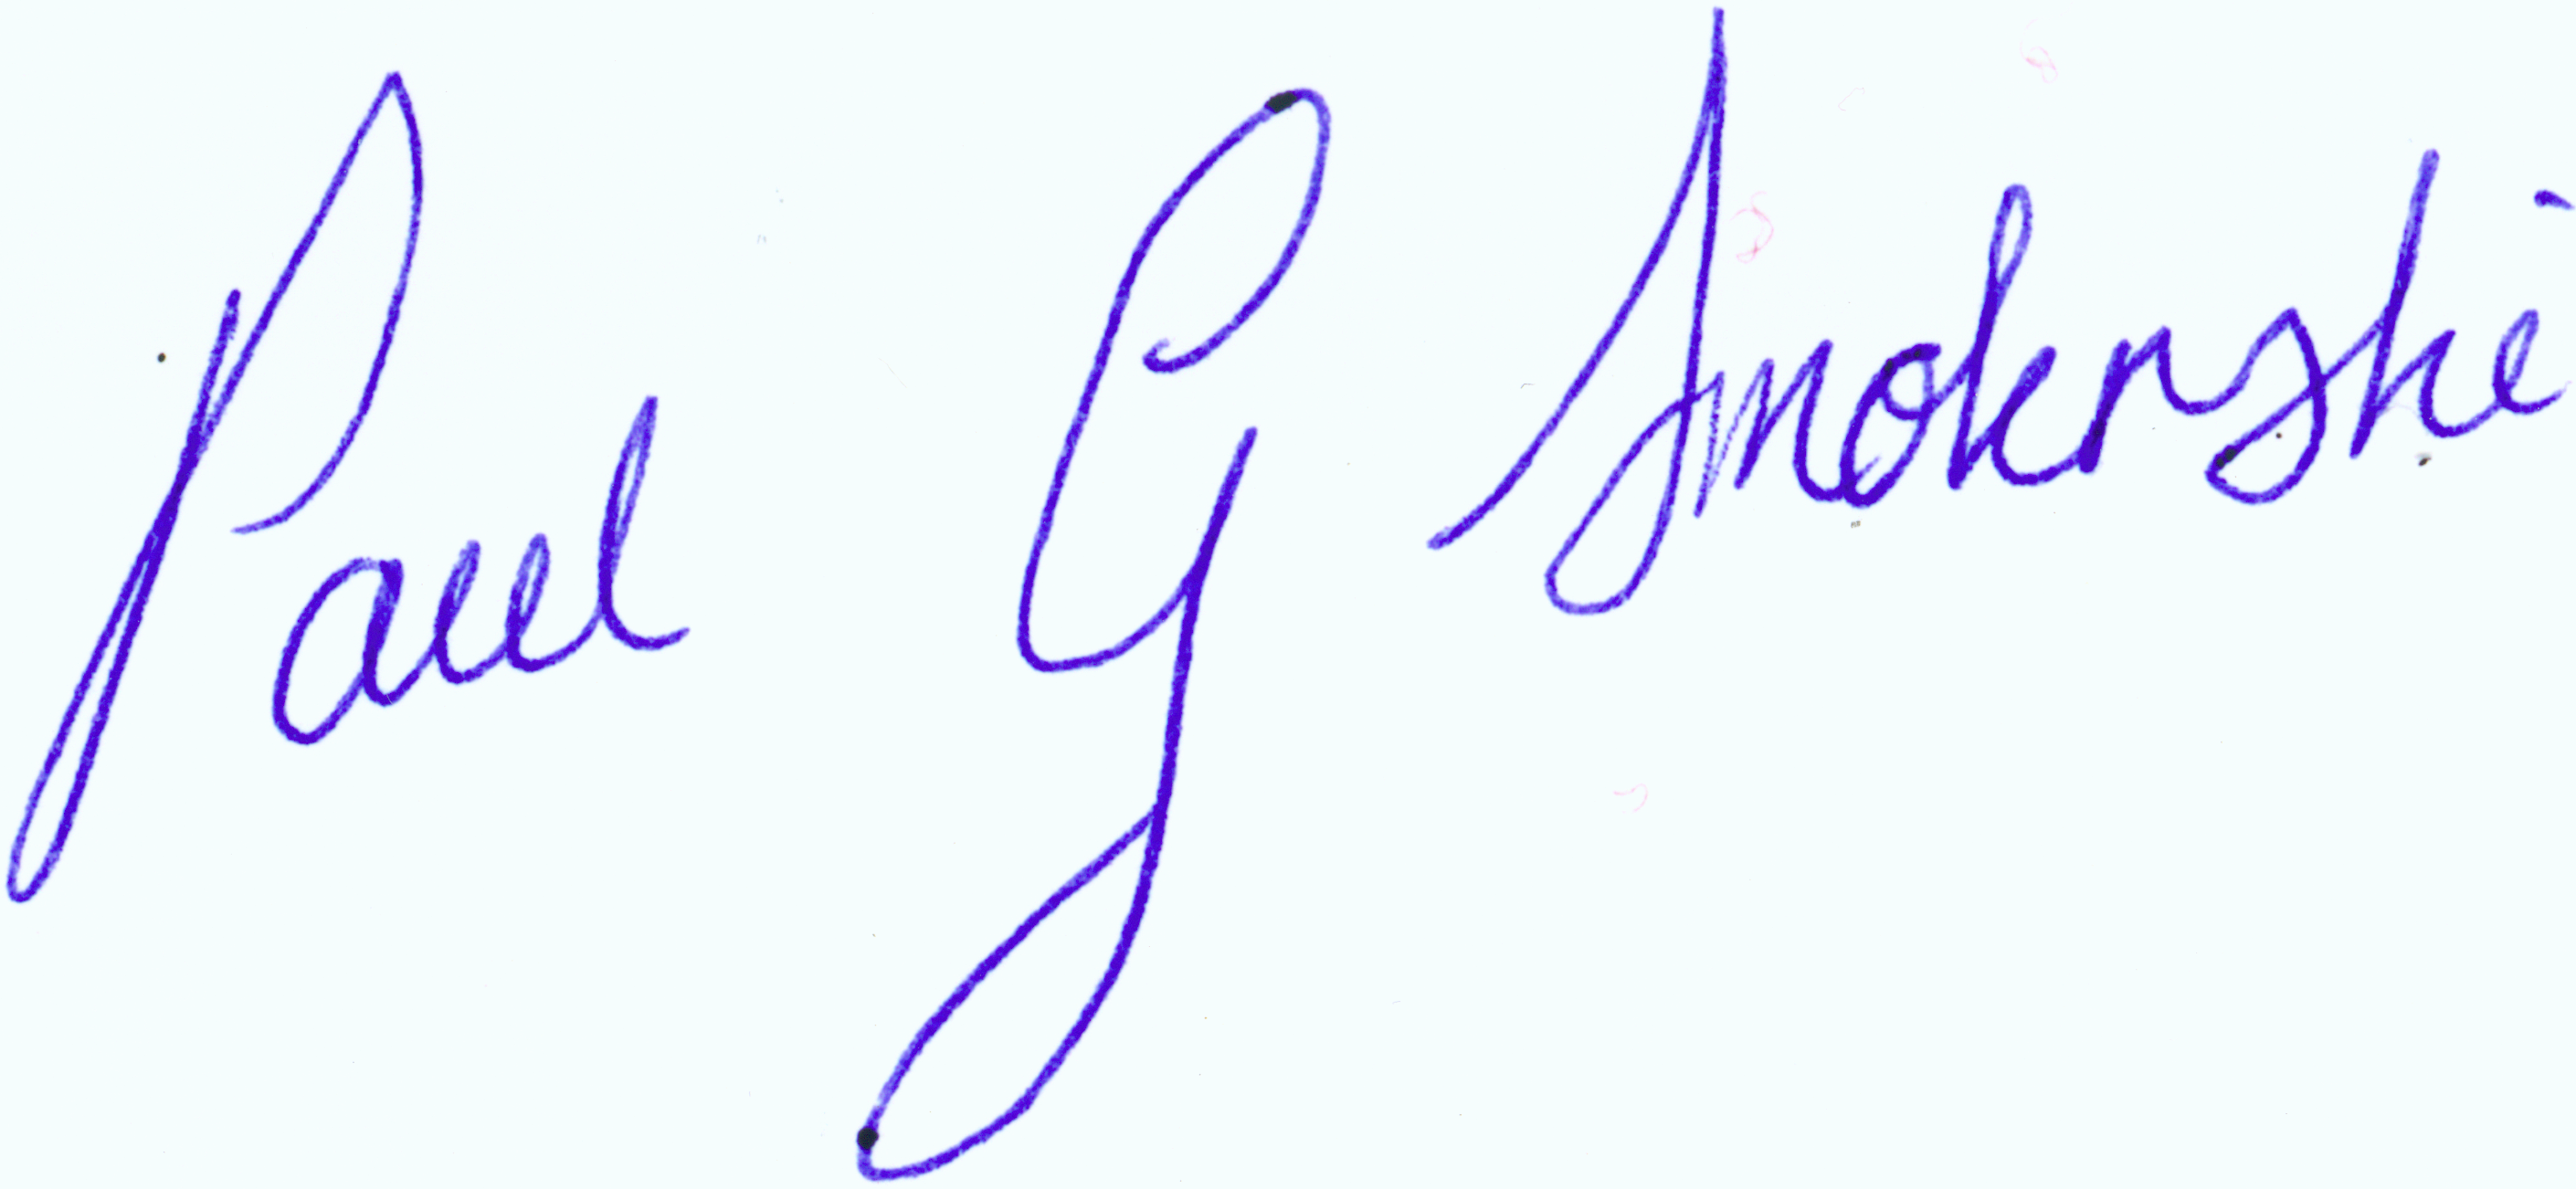 Paul G Smokrski